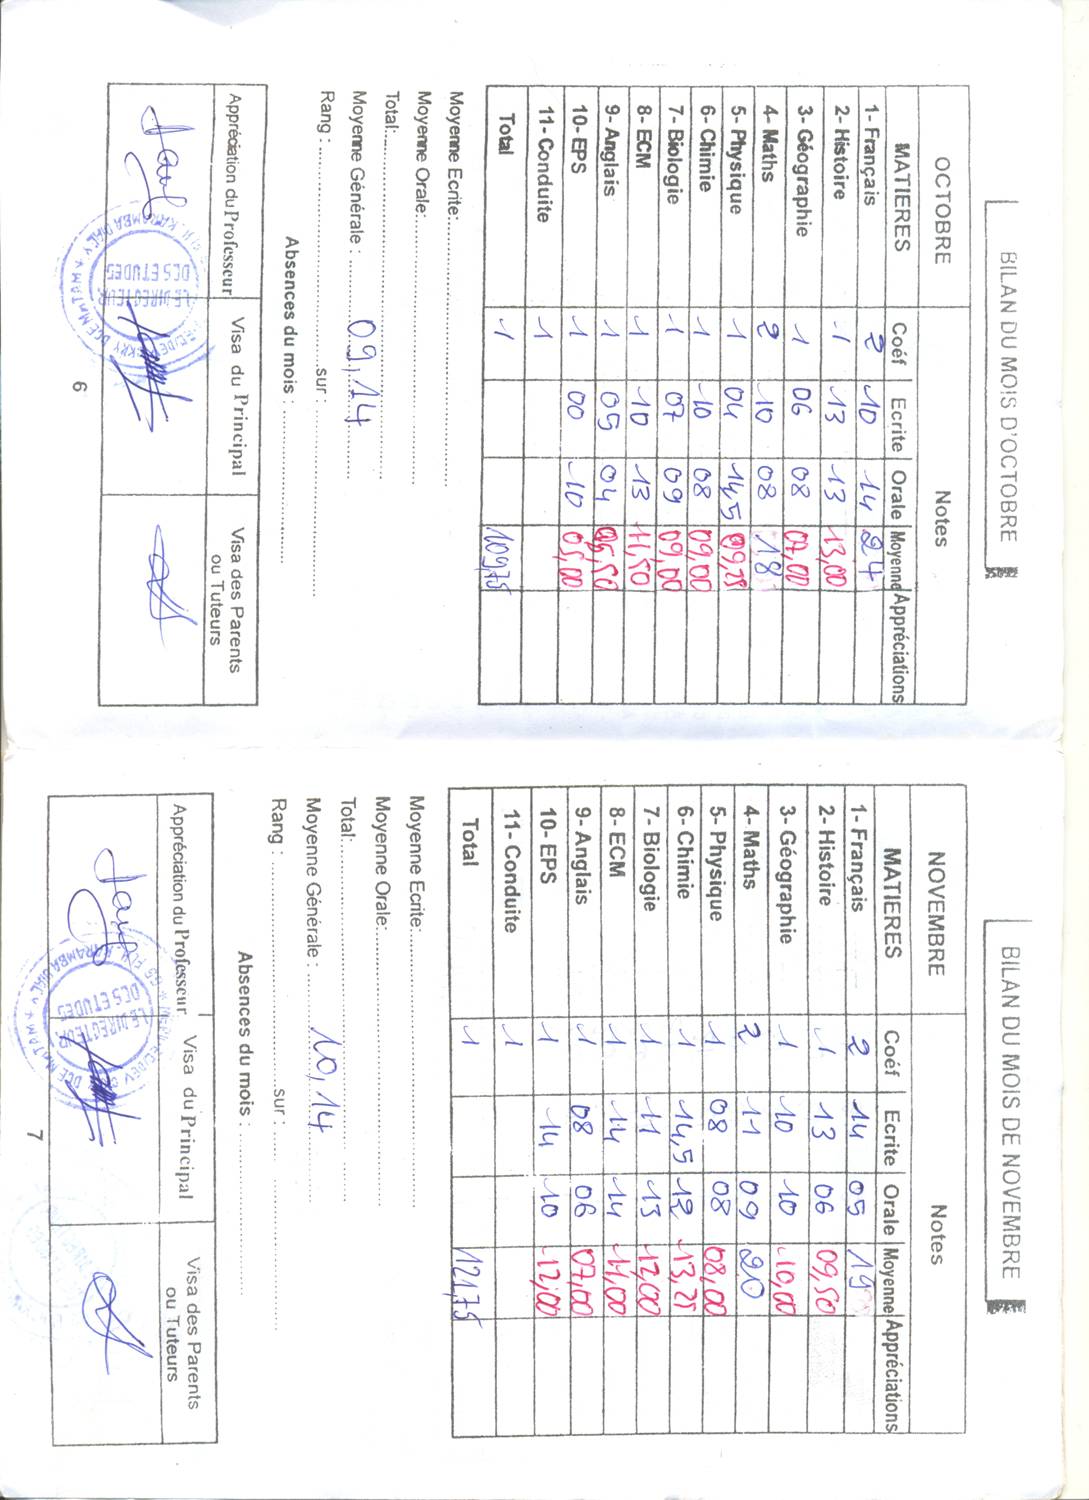 BILAN DU MOIS D'OCTOBRE
OCTOBRE Notes
MATIERES Coéf Ecrite Orale Moyenne Appréciations
1- Français 2 10 14 24
2- Histoire 1 13 13 13,00
3- Géographie 1 06 08 07,00
4- Maths 2 10 08 18
5- Physique 1 04 14,5 09,25
6- Chimie 1 10 08 09,00
7- Biologie 1 07 09 09,00
8- ECM 1 10 13 11,50
9- Anglais 1 05 04 05,50
10- EPS 1 00 10 05,00
11- Conduite 1
Total 1 109,75
Moyenne Ecrite:
Moyenne Orale:
Total:
Moyenne Générale : 09,14
Rang : sur :
Absences du mois :
Appréciation du Professeur Visa du Principal Visa des Parents ou Tuteurs
LE DIRECTEUR
DES ETUDES
6
BILAN DU MOIS DE NOVEMBRE
NOVEMBRE Notes
MATIERES Coéf Ecrite Orale Moyenne Appréciations
1- Français 2 14 05 19
2- Histoire 1 13 06 09,50
3- Géographie 1 10 10 10,00
4- Maths 2 11 09 20
5- Physique 1 08 08 08,00
6- Chimie 1 14,5 12 13,25
7- Biologie 1 11 13 12,00
8- ECM 1 14 14 14,00
9- Anglais 1 08 06 07,00
10- EPS 1 14 10 12,00
11- Conduite 1
Total 1 121,75
Moyenne Ecrite:
Moyenne Orale:
Total:
Moyenne Générale : 10,14
Rang : sur :
Absences du mois :
Appréciation du Professeur Visa du Principal Visa des Parents ou Tuteurs
LE DIRECTEUR
DES ETUDES
7